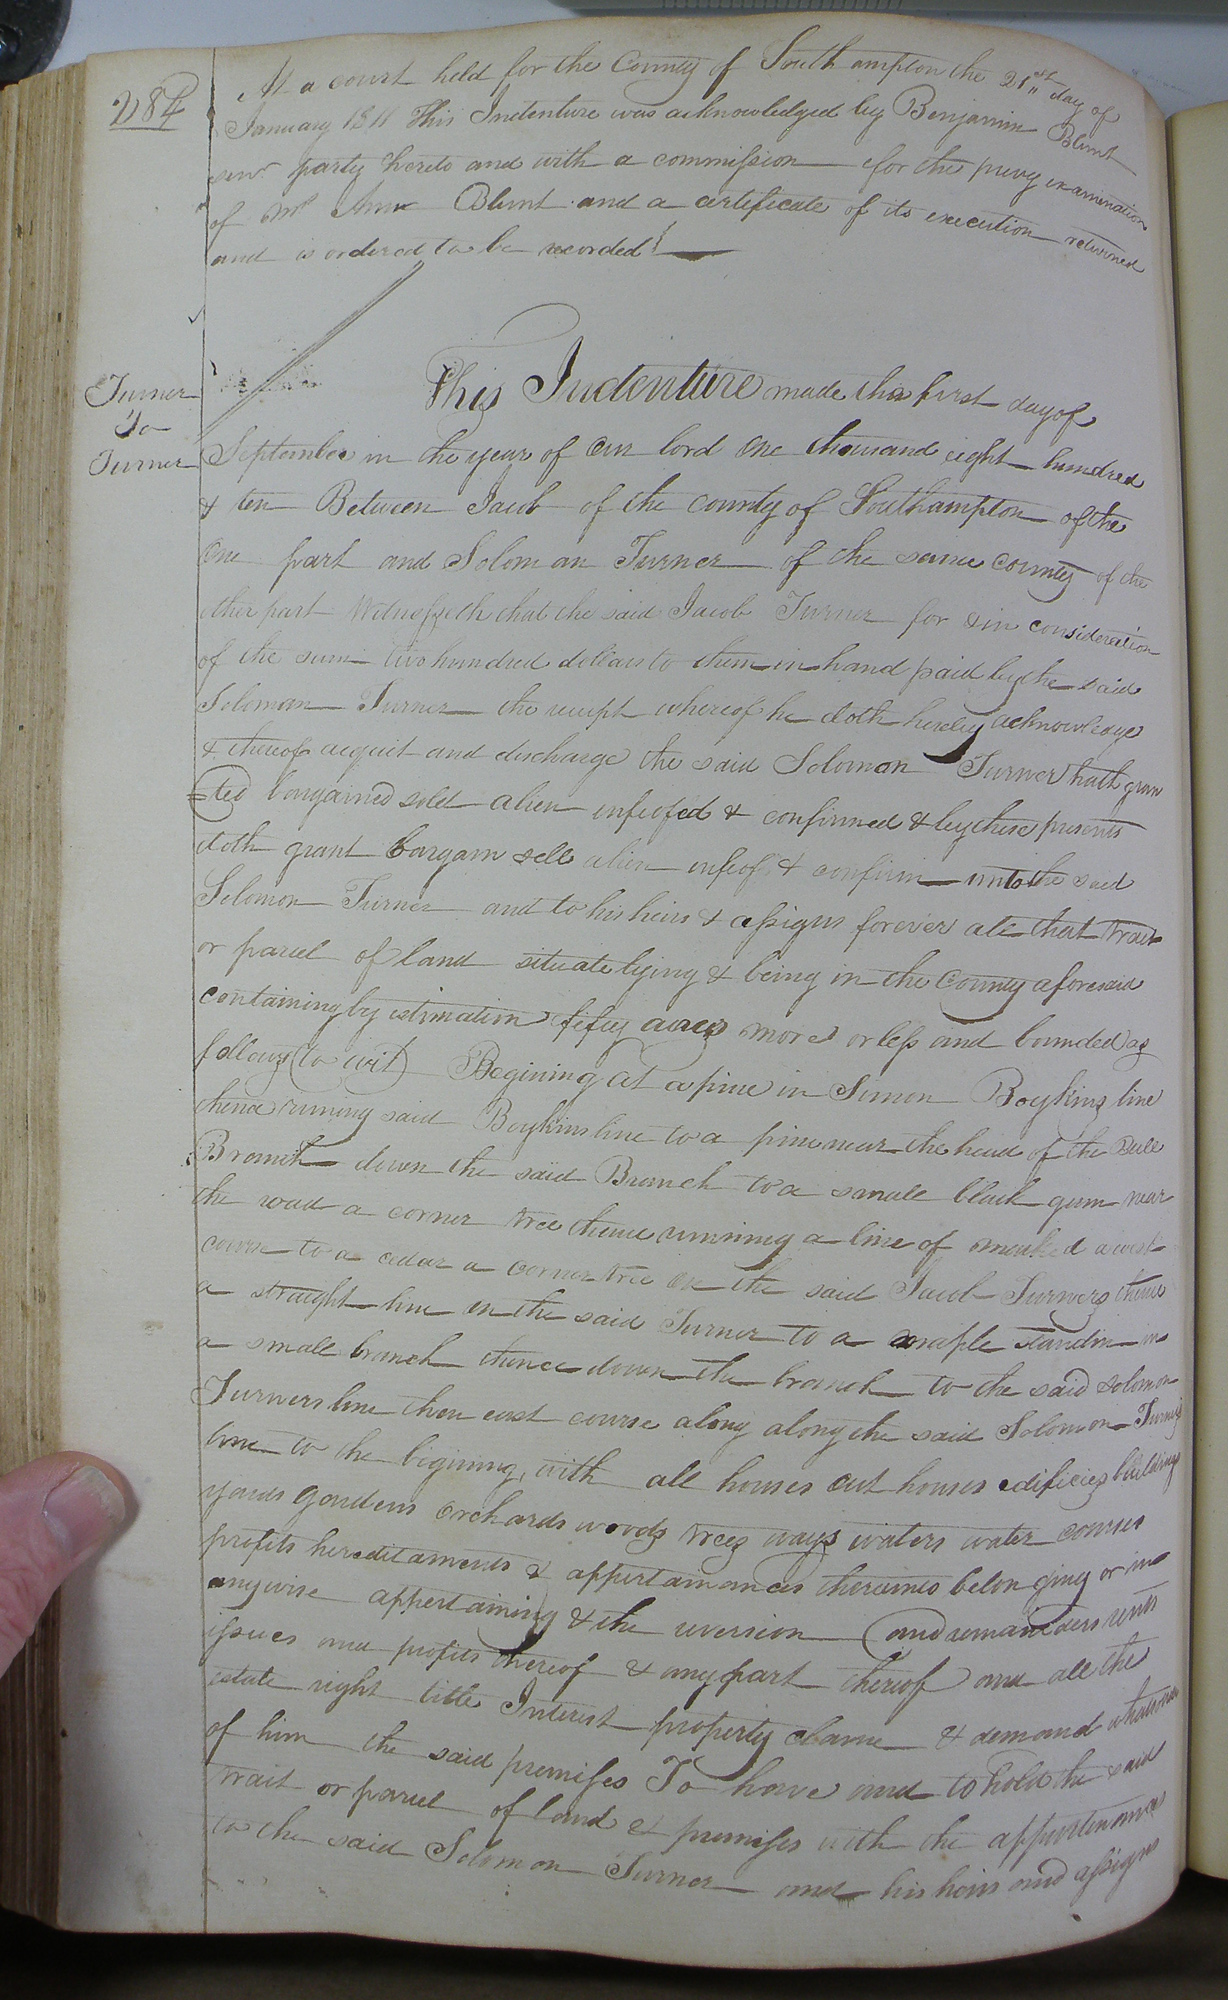 284
At a court held for the County of Southampton the 21st day of
January 1811 This Indenture was acknowledged by Benjamin Blunt
senr party hereto and with a commission for the privy examination
of Mrs Ann Blunt and a certificate of its execution returned
and is ordered to be recorded
Turner
To
Turner
This Indenture made this first day of
September in the year of our lord One thousand eight hundred
& ten Between Jacob of the county of Southampton of the
One part and Solomon Turner of the same county of the
other part Witnesseth that the said Jacob Turner for & in consideration
of the sum two hundred dollars to them in hand paid by the said
Solomon Turner the receipt whereof he doth hereby acknowledge
& thereof acquet and discharge the said Solomon Turner hath gran
=ted bargained sold alien infeofed & confirmed & by these presents
doth grant bargain sell alien infeof & confirm unto the said
Solomon Turner and to his heirs & assigns forever all that tract
or parcel of land situate lying & being in the County aforesaid
containing by estimation fifty acres more or less and bounded as
follows (to wit) Begining at a pine in Simon Boykins line
thence runing said Boykins line to a pine near the head of the
Branch down the said Branch to a small black gum near
the road a corner tree thence running a line of marked a west
course to a cedar a corner tree on the said Jacob Turners thence
a straight line on the said Turner to a maple standin in
a small branch thence down the branch to the said Solomon
Turners line then east course along along the said Solomon Turners
line to the bigining, with all houses out houses edificies buildings
yards gardens orchards woods trees ways waters water courses
profits hereditaments & appertainances thereunto belonging or in
anywise appertaining & the reversion and remainders rents
issues and profits thereof & any part thereof and all the
estate right title Interest property claim & demand whatsoever
of him the said premises To have and to hold the said
tract or parcel of land & premises with the appurtenances
to the said Solomon Turner and his heirs and assigns